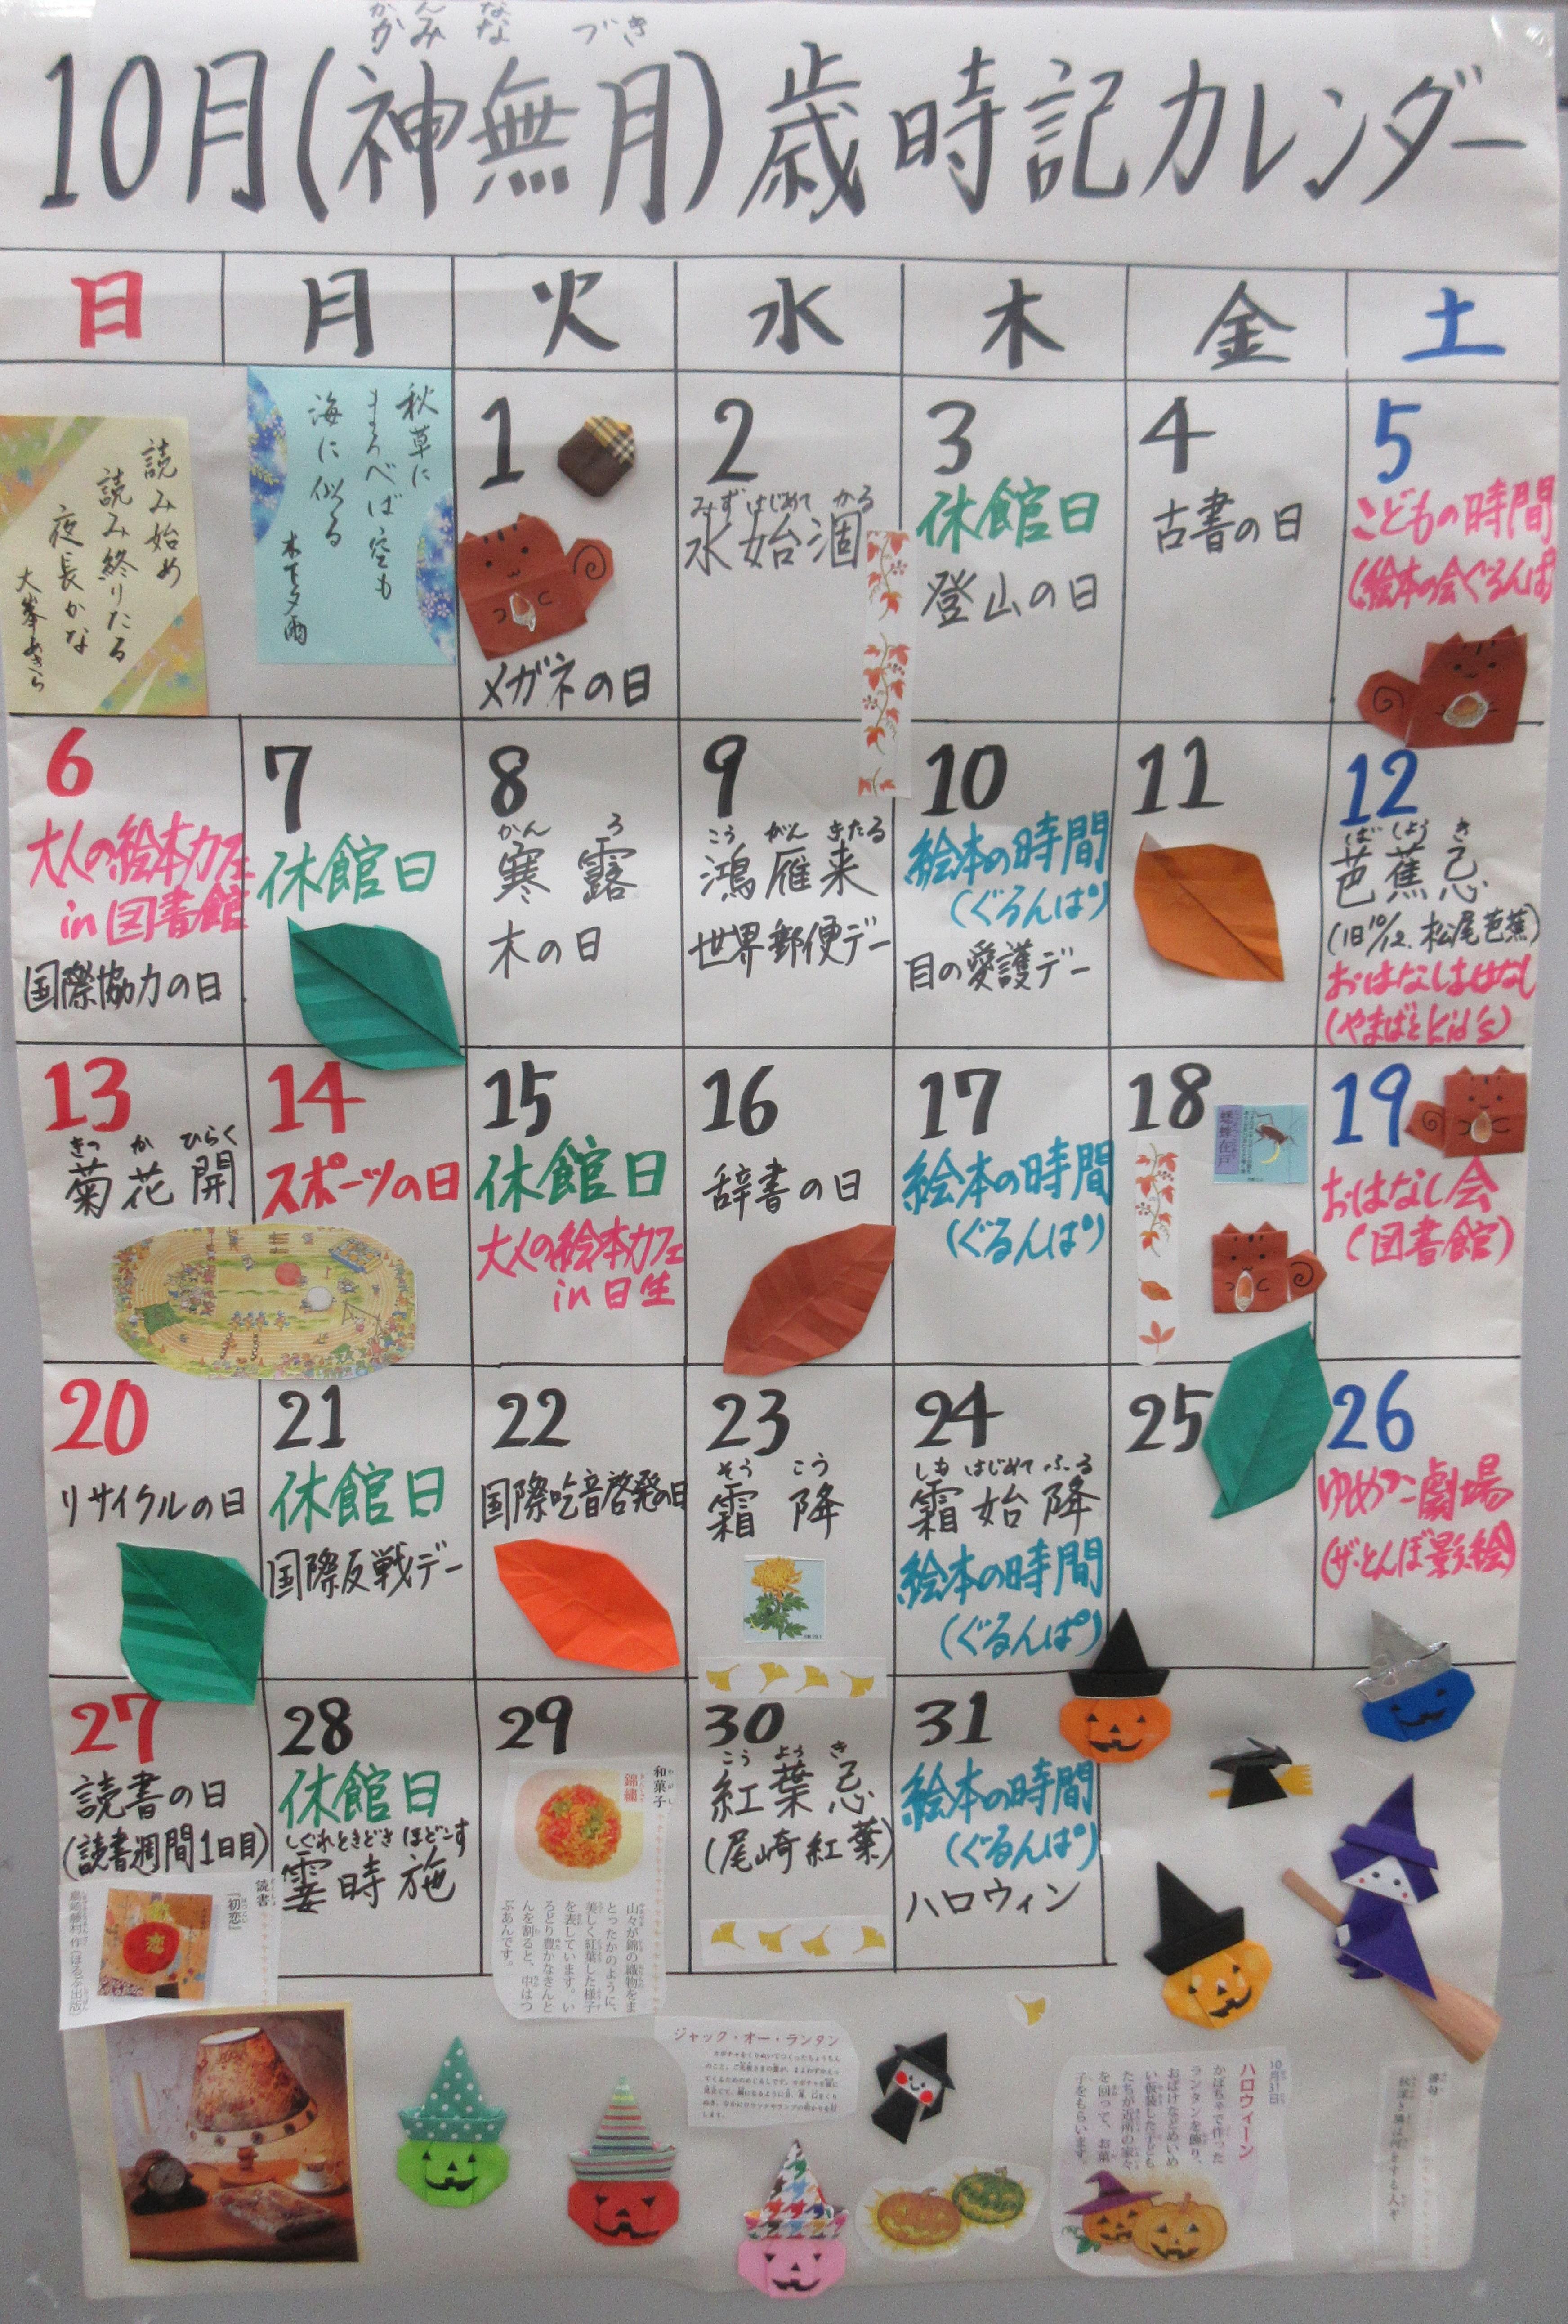 かんなづき
かみな
10月(神無月)歳時記カレンダー
日 月 火 水 木 金 土
読み始め
読み終りたる
夜長かな
大峯あきら
秋草に
まろべば空も
海に似る
木下夕爾
1
メガネの日
2
みずはじめて かる
水始涸
3
休館日
登山の日
4
古書の日
5
こどもの時間
(絵本の会ぐるんぱ)
6
大人の絵本カフェ
in 図書館
国際協力の日
7
休館日
8
かん ろ
寒露
木の日
9
こう がん きたる
鴻雁来
世界郵便デー
10
絵本の時間
(ぐるんぱ)
目の愛護デー
11
12
ばしょうき
芭蕉忌
(旧10/12. 松尾芭蕉)
おはなしはなし
(やまばとkid's)
13
きっ か ひらく
菊花開
14
スポーツの日
15
休館日
大人の絵本カフェ
in 日生
16
辞書の日
17
絵本の時間
(ぐるんぱ)
18
蟋蟀在戸
19
おはなし会
(図書館)
20
リサイクルの日
21
休館日
国際反戦デー
22
国際吃音啓発の日
23
そう こう
霜降
24
しも はじめて ふる
霜始降
絵本の時間
(ぐるんぱ)
25
26
ゆめつこ劇場
(ザ・とんぼ影絵)
27
読書の日
(読書週間1日目)
読書
『初恋』
島崎藤村 作(ほるぷ出版)
恋
28
休館日
しぐれときどき ほどこす
霎時施
29
和菓子
わがし
錦繍
山々が錦の織物をま
とったかのように、
美しく紅葉した様子
を表しています。い
ろどり豊かなきんと
んを割ると、中はつ
ぶあんです。
30
こう よう き
紅葉忌
(尾崎紅葉)
31
絵本の時間
(ぐるんぱ)
ハロウィン
ジャック・オー・ランタン
10月31日
ハロウィーン
かぼちゃで作った
ランタンを飾り、
おばけなどめいめ
い仮装した子ども
たちが近所の家々
を回って、お菓
子をもらいます。
秋深き隣は何をする人ぞ